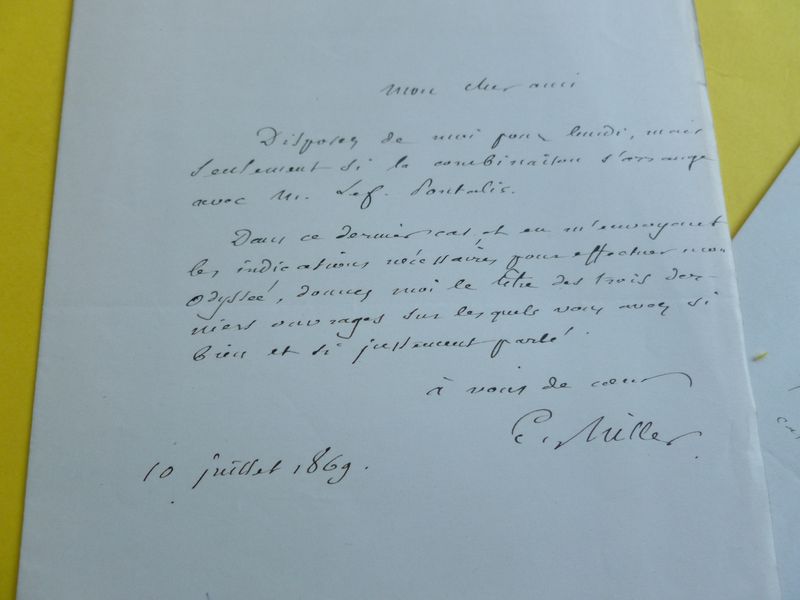 mon cher ami
Disposez de moi pour lundi, mais
seulement si la combinaison s'arrange
avec M. Lef. Pontalis.
Dans ce dernier cas et en m'envoyant
les indications nécessaires pour effectuer mon
odyssée, donnez moi le titre des trois der-
niers ouvrages sur lesquels vous avez si
bien et si justement parlé.
à vous de cœur
E. Miller.
10 juillet 1869.